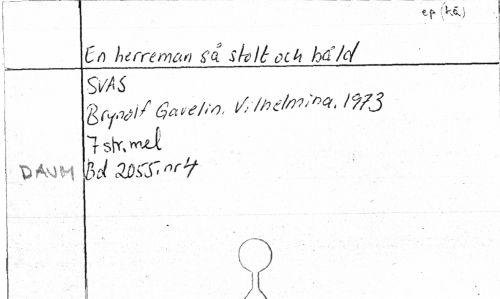 ep (kä)
En herreman så stolt och båld
SVAS
Brynolf Gavelin, Vilhelmina, 1973
7 str. mel
DAUM Bd 2055. nr 4